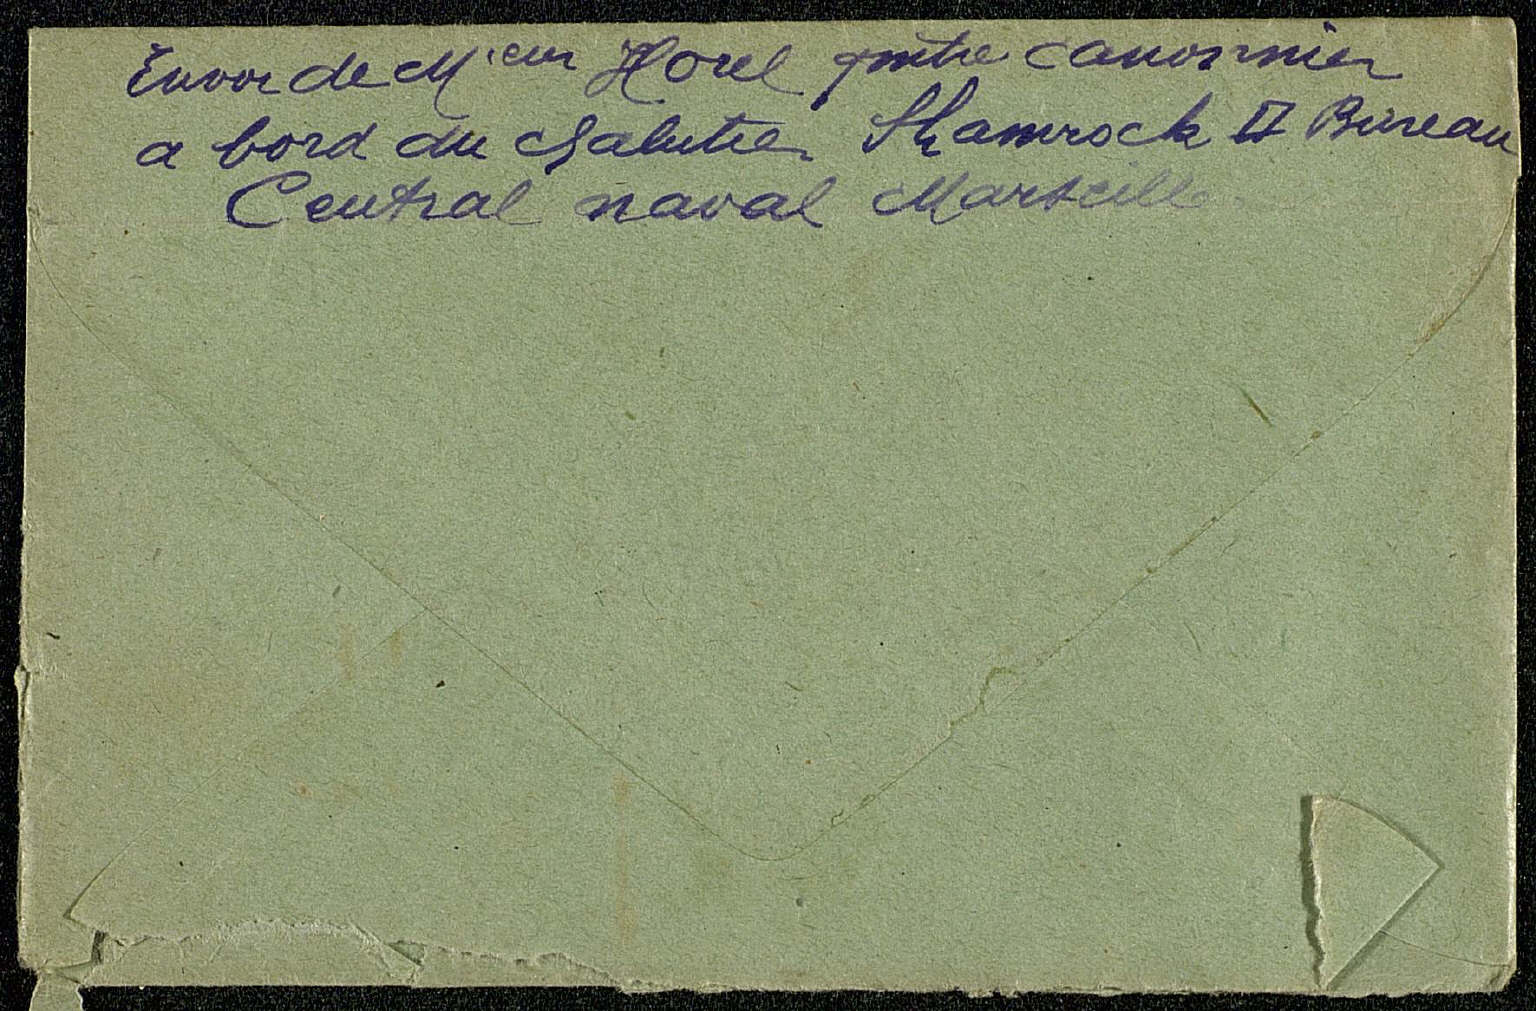 Envoi de Mieur Horel qmtre canonnier
a bord du chalutier Shamrock II Bureau
Central naval Marseille